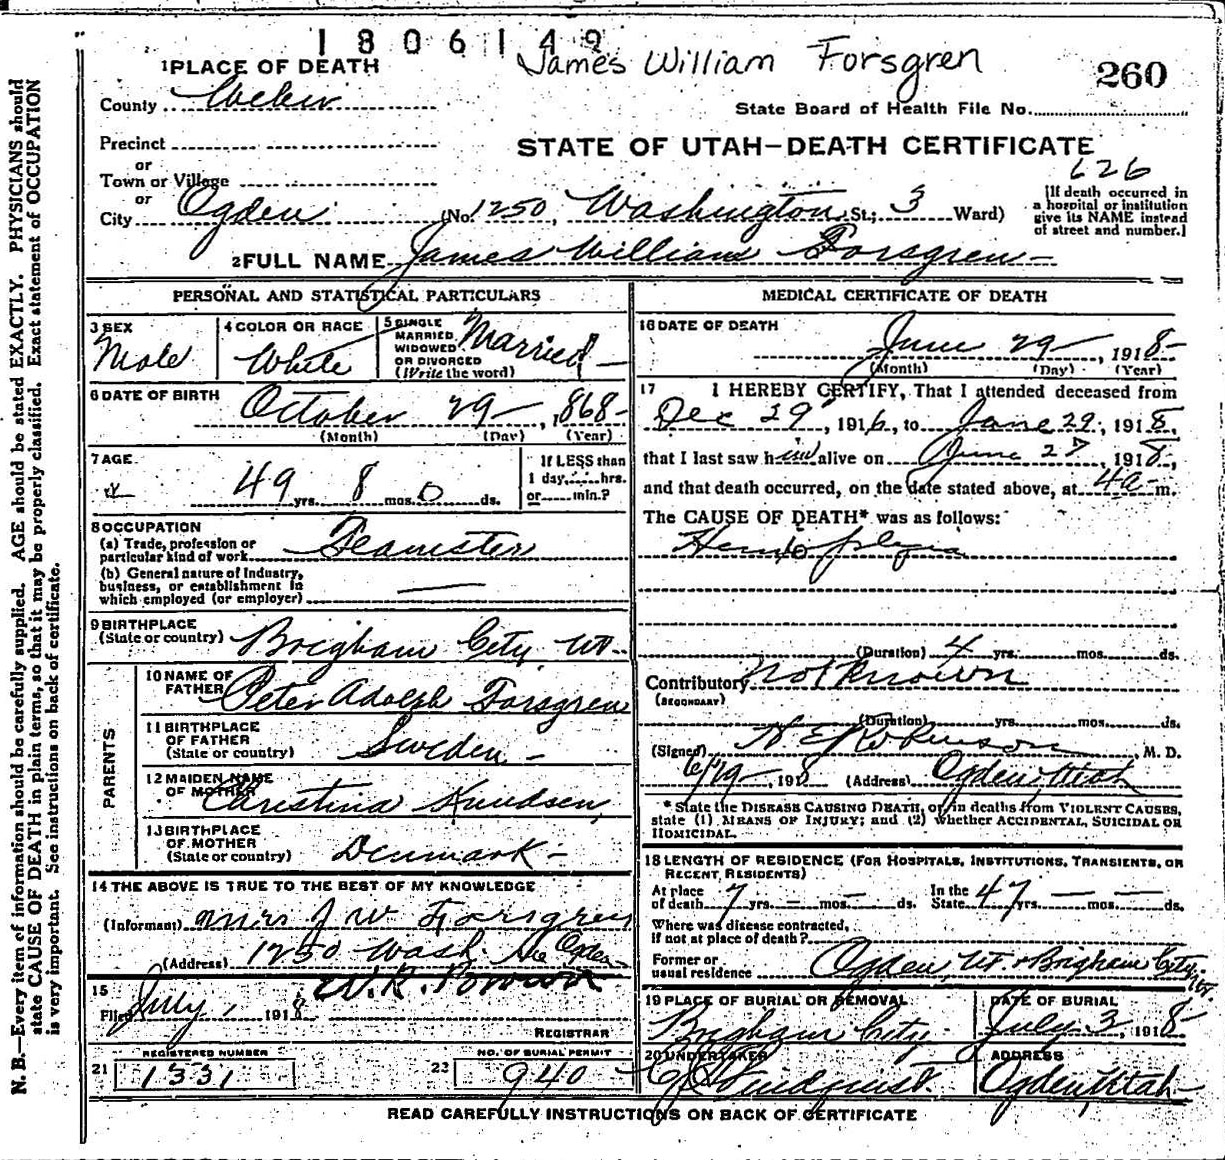 1806149
James William Forsgren
260
1 PLACE OF DEATH
County Weber
State Board of Health File No.
Precinct
or
Town or Village
or
STATE OF UTAH—DEATH CERTIFICATE
626
City Ogden (No. 1250, Washington St; 3 Ward)
[If death occurred in
a hospital or institution
give its NAME instead
of street and number.]
2 FULL NAME James William Forsgren
PERSONAL AND STATISTICAL PARTICULARS
3 SEX
Male
4 COLOR OR RACE
White
5 SINGLE
MARRIED
WIDOWED
OR DIVORCED
(Write the word)
Married
6 DATE OF BIRTH
October 29, 1868
(Month) (Day) (Year)
7 AGE
49 yrs. 8 mos. 0 ds.
If LESS than
1 day, hrs.
or min.?
8 OCCUPATION
(a) Trade, profession or
particular kind of work Teamster
(b) General nature of Industry,
business, or establishment in
which employed (or employer)
9 BIRTHPLACE
(State or country) Brigham City Ut
PARENTS
10 NAME OF
FATHER Peter Adolph Forsgren
11 BIRTHPLACE
OF FATHER
(State or country) Sweden
12 MAIDEN NAME
OF MOTHER Christina Knudsen
13 BIRTHPLACE
OF MOTHER
(State or country) Denmark
14 THE ABOVE IS TRUE TO THE BEST OF MY KNOWLEDGE
(Informant) Mrs J W Forsgren
(Address) 1250 Wash. Ave Ogden
15
Filed July 1, 1918 W. R. Brown
REGISTRAR
REGISTERED NUMBER
21 1331
NO. OF BURIAL PERMIT
22 940
MEDICAL CERTIFICATE OF DEATH
16 DATE OF DEATH
June 29, 1918
(Month) (Day) (Year)
17 I HEREBY CERTIFY, That I attended deceased from
Dec 29, 1916, to June 29, 1918,
that I last saw him alive on June 27, 1918,
and that death occurred, on the date stated above, at 4a m.
The CAUSE OF DEATH* was as follows:
Hemiplegia
(Duration) 4 yrs. mos. ds.
Contributory not known
(SECONDARY)
(Duration) yrs. mos. ds.
(Signed) Robinson, M. D.
6/29, 1918 (Address) Ogden, Utah
* State the DISEASE CAUSING DEATH, or, in deaths from VIOLENT CAUSES,
state (1) MEANS OF INJURY; and (2) whether ACCIDENTAL, SUICIDAL OR
HOMICIDAL.
18 LENGTH OF RESIDENCE (FOR HOSPITALS, INSTITUTIONS, TRANSIENTS, OR
RECENT RESIDENTS)
At place
of death 7 yrs. mos. ds. In the
State 47 yrs. mos. ds.
Where was disease contracted,
if not at place of death?
Former or
usual residence Ogden, Ut. & Brigham City, Ut.
19 PLACE OF BURIAL OR REMOVAL
Brigham City
DATE OF BURIAL
July 3, 1918
20 UNDERTAKER
Lindquist
ADDRESS
Ogden, Utah
READ CAREFULLY INSTRUCTIONS ON BACK OF CERTIFICATE
N. B.—Every item of information should be carefully supplied. AGE should be stated EXACTLY. PHYSICIANS should
state CAUSE OF DEATH in plain terms, so that it may be properly classified. Exact statement of OCCUPATION
is very important. See instructions on back of certificate.